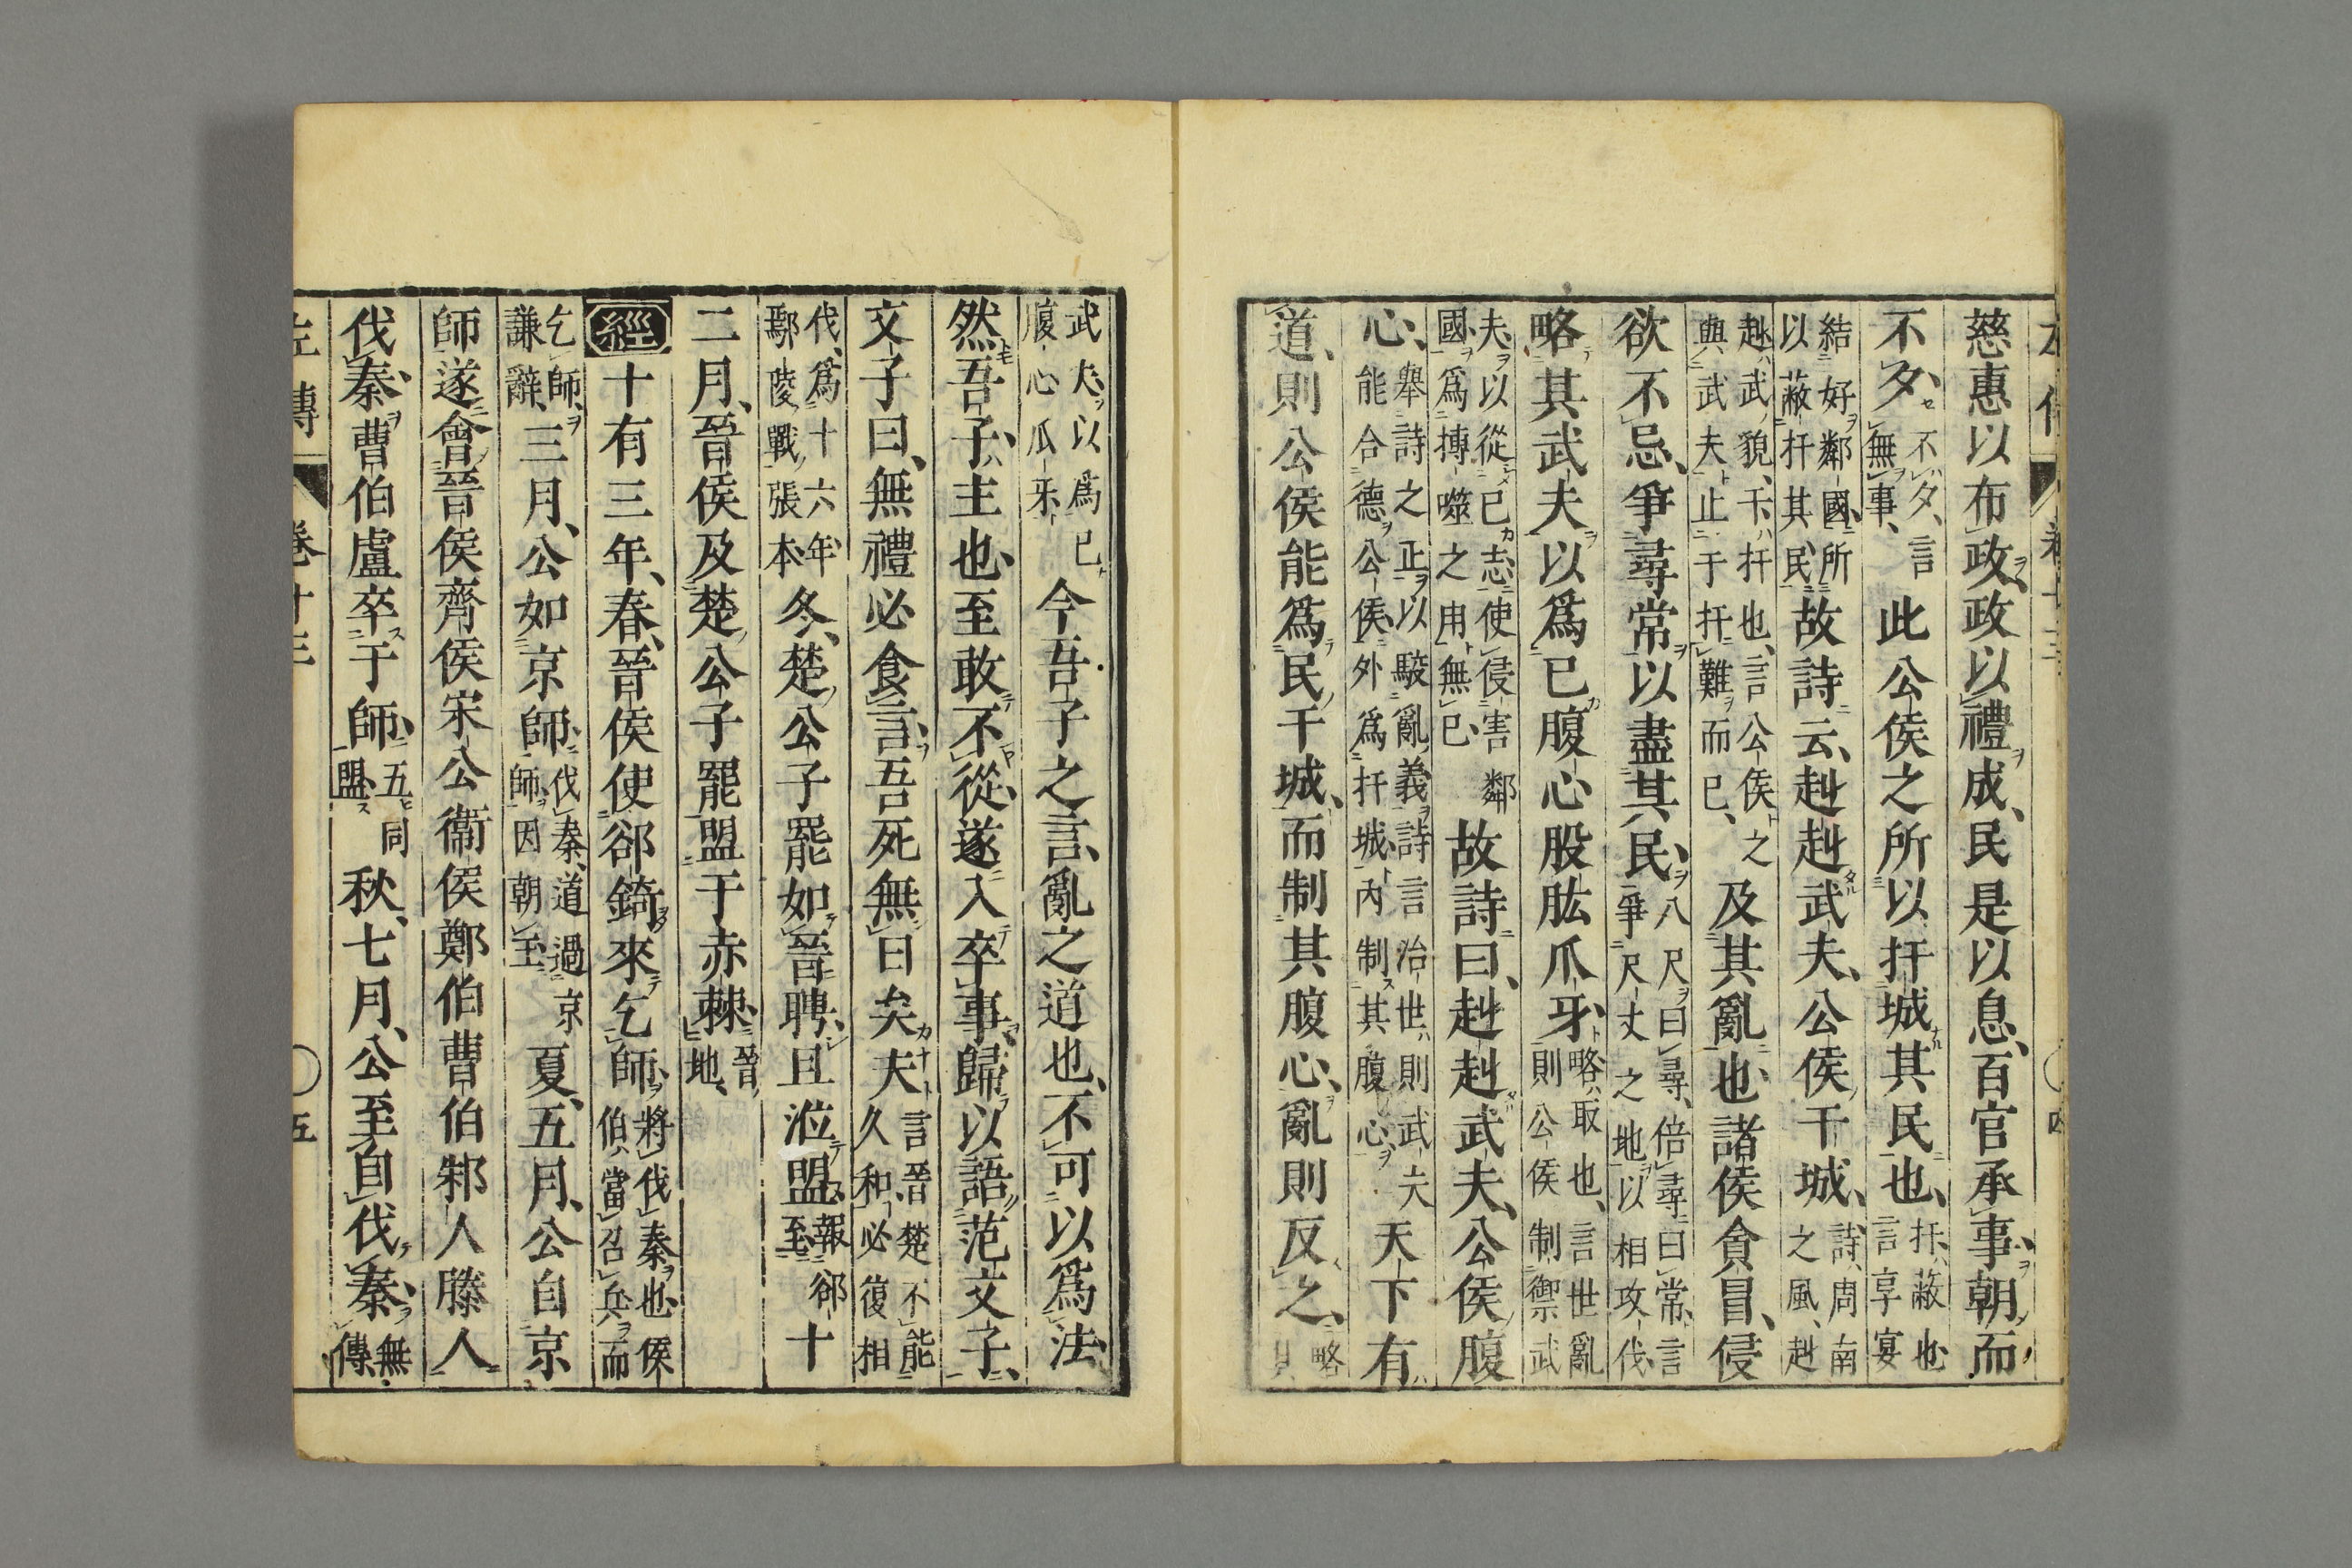 慈惠以布政政以禮成民是以息百官承事朝而
不夕不夕言無事此公侯之所以扞城其民也扞蔽也言享宴
結好鄰國所以蔽扞其民故詩云赳赳武夫公侯干城詩周南之風赳
赳武貌干扞也言公侯之與武夫止于扞難而已及其亂也諸侯貪冒侵
欲不忌爭尋常以盡其民八尺曰尋倍尋曰常言爭尺丈之地以相攻伐
略其武夫以爲已腹心股肱爪牙略取也言世亂則公侯制禦武
夫以從已志使侵害鄰國爲搏噬之用無已故詩曰赳赳武夫公侯腹
心舉詩之正以駮亂義詩言治世則武夫能合德公侯外爲扞城內制其腹心天下有
道則公侯能爲民干城而制其腹心亂則反之略其
武夫以爲已腹心爪牙今吾子之言亂之道也不可以爲法
然吾子主也至敢不從遂入卒事歸以語范文子
文子曰無禮必食言吾死無日矣夫言晉楚不能久和必復相
伐爲十六年鄢陵戰張本冬楚公子罷如晉聘且涖盟報郤至十
二月晉侯及楚公子罷盟于赤棘晉地
經十有三年春晉侯使郤錡來乞師將伐秦也侯伯當召兵而
乞師謙辭三月公如京師伐秦道過京師因朝王夏五月公自京
師遂會晉侯齊侯宋公衞侯鄭伯曹伯邾人滕人
伐秦曹伯盧卒于師五同盟秋七月公至自伐秦無傳
左傳 卷十三 五